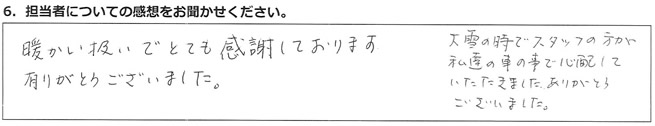 6. 担当者についての感想をお聞かせください。
暖かい扱いでとても感謝しております
有りがとうございました。
大雪の時でスタッフの方が
私達の車の事で心配して
いただきました。ありがとう
ございました。